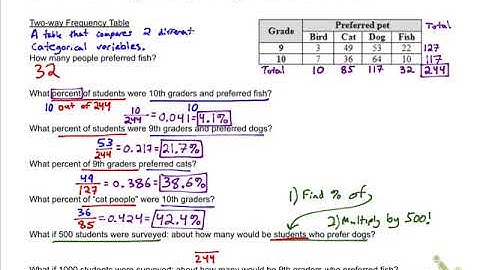 Two-way Frequency Table
A table that compares 2 different
Categorical variables.
How many people preferred fish?
32
Grade Preferred pet Total
Bird Cat Dog Fish
9 3 49 53 22 127
10 7 36 64 10 117
Total 10 85 117 32 244
What percent of students were 10th graders and preferred fish?
10 out of 244 10
10/244 = 0.041 = 4.1%
What percent of students were 9th graders and preferred dogs?
53/244 = 0.217 = 21.7%
What percent of 9th graders preferred cats?
49/127 = 0.386 = 38.6%
What percent of "cat people" were 10th graders?
36/85 = 0.424 = 42.4%
1) Find % of
2) Multiply by 500!
What if 500 students were surveyed: about how many would be students who prefer dogs?
244
What if 1000 students were surveyed: about how many would be 9th graders who preferred fish?